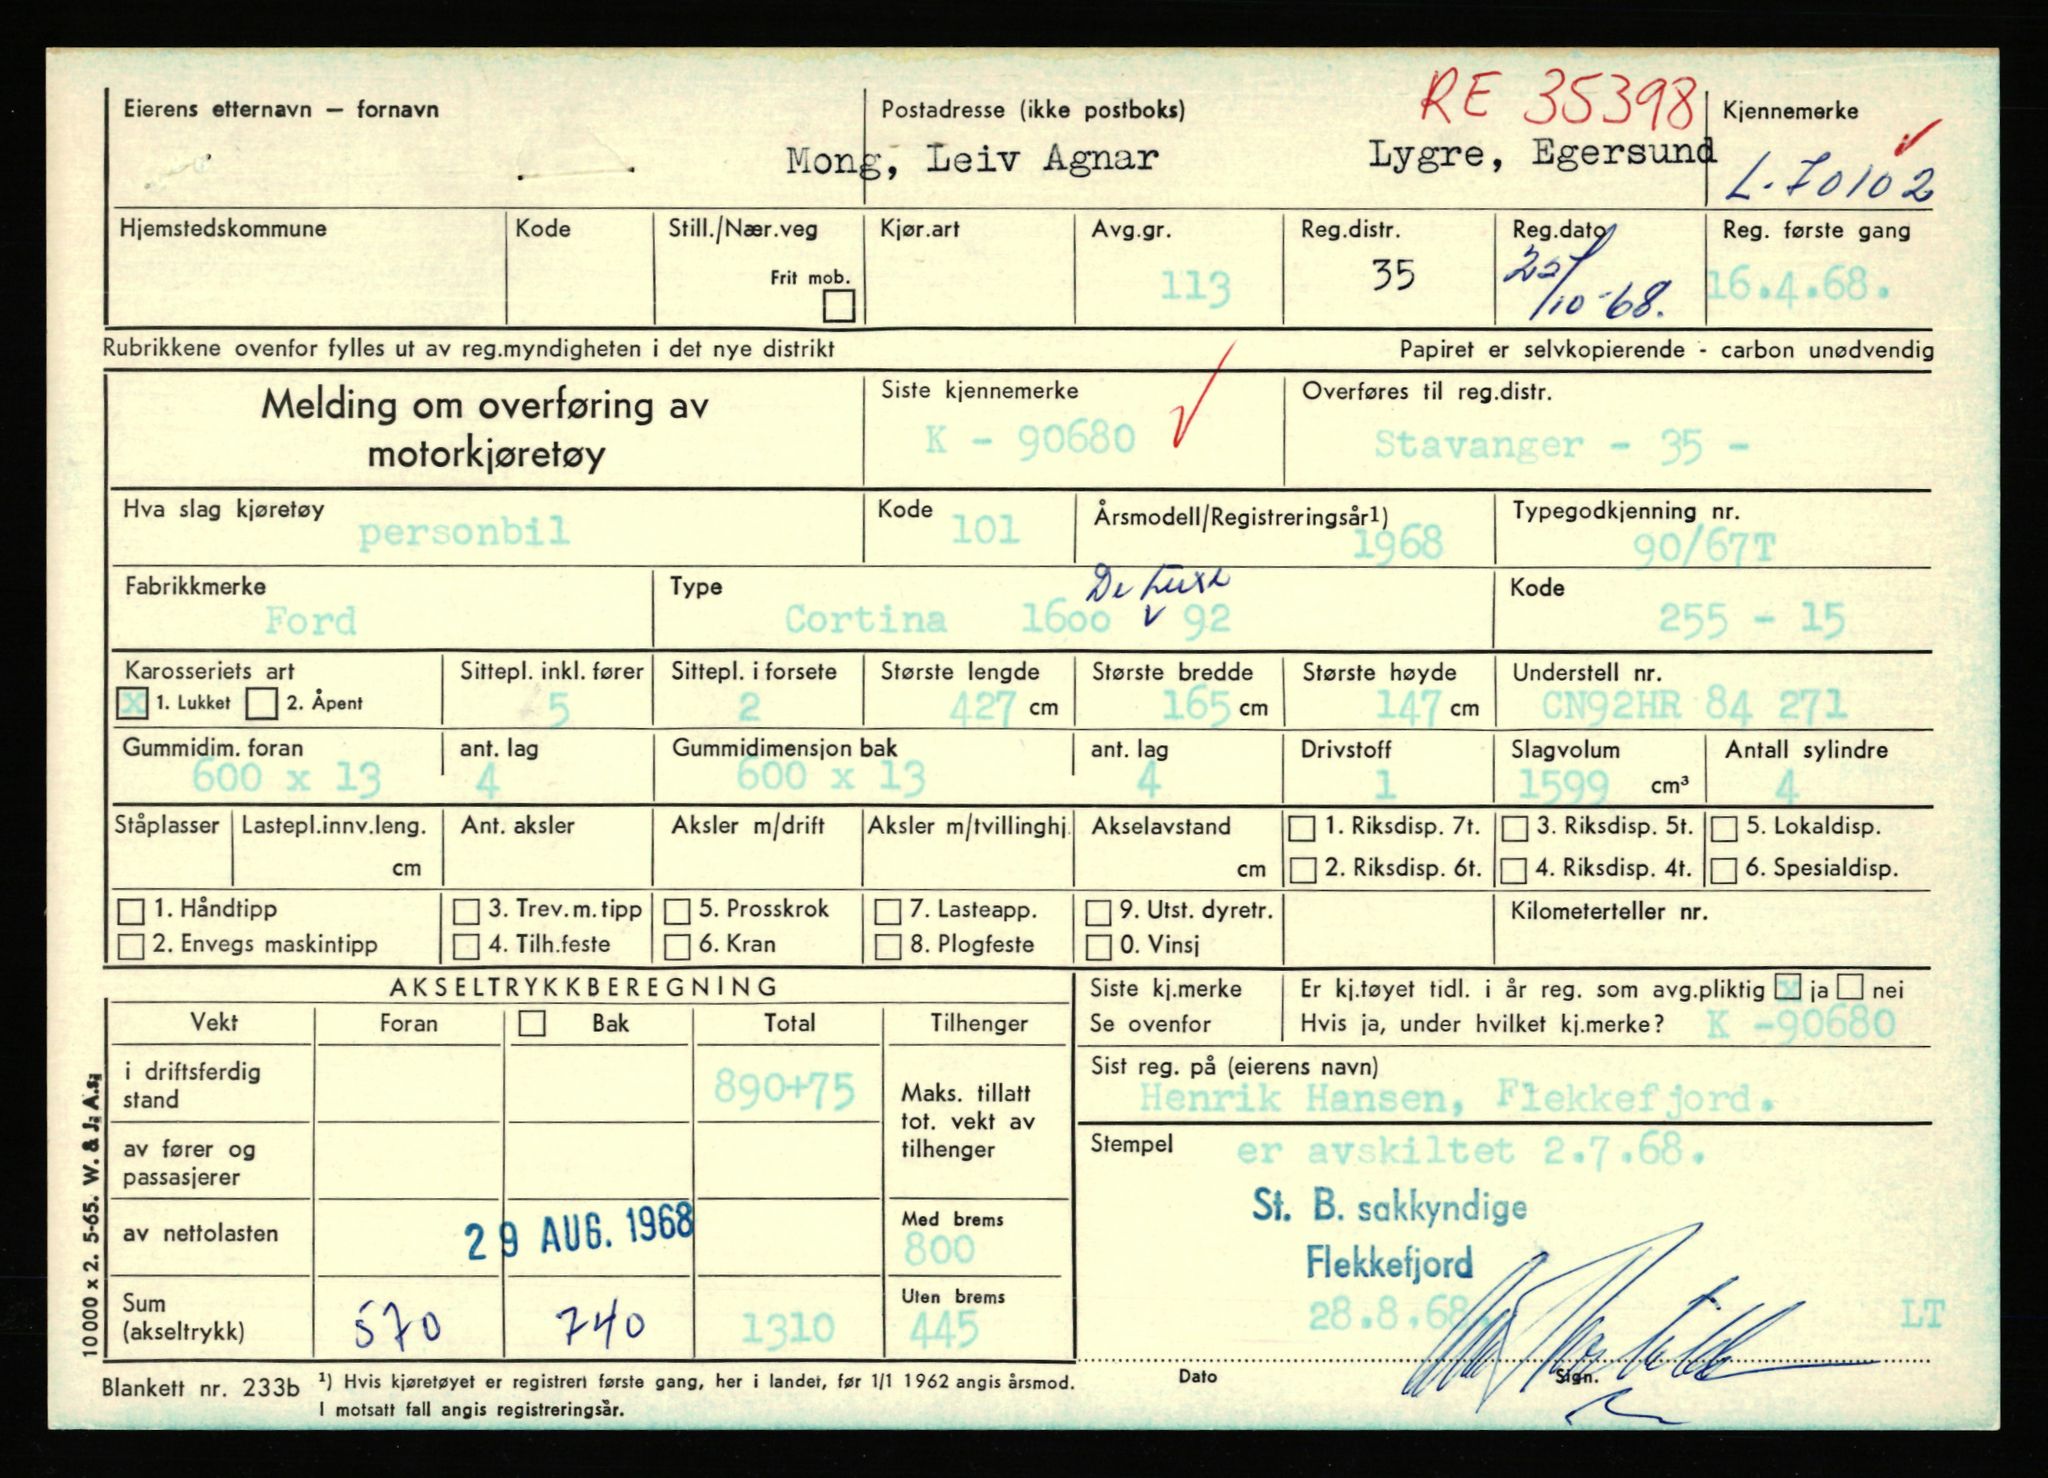 RE 35398
Eierens etternavn — fornavn Postadresse (ikke postboks) Kjennemerke
Mong, Leiv Agnar Lygre, Egersund L-70102
Hjemstedskommune Kode Still./Nær.veg Kjør.art Avg.gr. Reg.distr. Reg.dato Reg. første gang
Frit mob. 113 35 /10-68. 16.4.68.
Rubrikkene ovenfor fylles ut av reg.myndigheten i det nye distrikt Papiret er selvkopierende - carbon unødvendig
Melding om overføring av
motorkjøretøy
Siste kjennemerke Overføres til reg.distr.
K - 90680 Stavanger - 35 -
Hva slag kjøretøy Kode Årsmodell/Registreringsår1) Typegodkjenning nr.
personbil 101 1968 90/67T
Fabrikkmerke Type De Luxe Kode
Ford Cortina 1600 v 92 255 - 15
Karosseriets art Sittepl. inkl. fører Sittepl. i forsete Største lengde Største bredde Største høyde Understell nr.
x 1. Lukket 2. Åpent 5 2 427 cm 165 cm 147 cm CN92HR 84 271
Gummidim. foran ant. lag Gummidimensjon bak ant. lag Drivstoff Slagvolum Antall sylindre
600 x 13 4 600 x 13 4 1 1599 cm³ 4
Ståplasser Lastepl.innv.leng. Ant. aksler Aksler m/drift Aksler m/tvillinghj. Akselavstand 1. Riksdisp. 7t. 3. Riksdisp. 5t. 5. Lokaldisp.
cm cm 2. Riksdisp. 6t. 4. Riksdisp. 4t. 6. Spesialdisp.
1. Håndtipp 3. Trev.m.tipp 5. Prosskrok 7. Lasteapp. 9. Utst. dyretr. Kilometerteller nr.
2. Envegs maskintipp 4. Tilh.feste 6. Kran 8. Plogfeste 0. Vinsj
AKSELTRYKKBEREGNING Siste kj.merke Er kj.tøyet tidl. i år reg. som avg.pliktig x ja nei
Vekt Foran Bak Total Tilhenger Se ovenfor Hvis ja, under hvilket kj.merke? K -90680
i driftsferdig
stand 890+75
Maks. tillatt
tot. vekt av
tilhenger
Sist reg. på (eierens navn)
Henrik Hansen, Flekkefjord.
av fører og
passasjerer
Stempel er avskiltet 2.7.68.
av nettolasten 29 AUG. 1968 Med brems
800
St. B. sakkyndige
Flekkefjord
Sum
(akseltrykk) 570 740 1310 Uten brems
445
28.8.68. LT
Dato Sign.
Blankett nr. 233b ¹) Hvis kjøretøyet er registrert første gang, her i landet, før 1/1 1962 angis årsmod.
I motsatt fall angis registreringsår.
10 000 x 2. 5-65. W. & J. A.s.